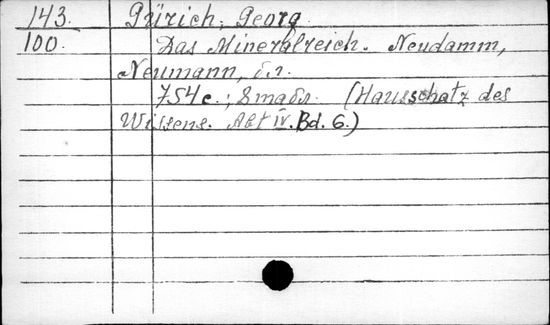 143. Gürich, Georg
100. Das Mineralreich. Neudamm,
Neumann, б.г.
754 с.; 8 табл. (Hausschatz des
Wissens. Abt IV. Bd. 6.)